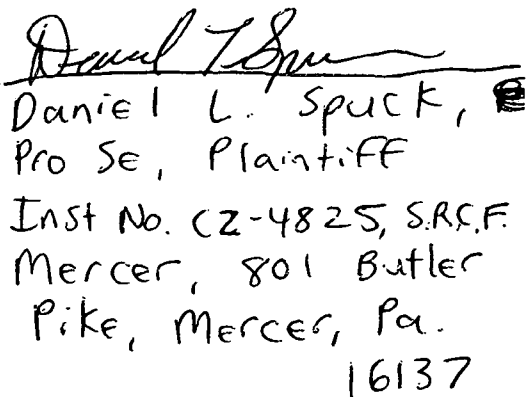 Daniel L Spuck
Daniel L. Spuck,
Pro Se, Plaintiff
Inst No. CZ-4825, S.R.C.F.
Mercer, 801 Butler
Pike, Mercer, Pa.
16137